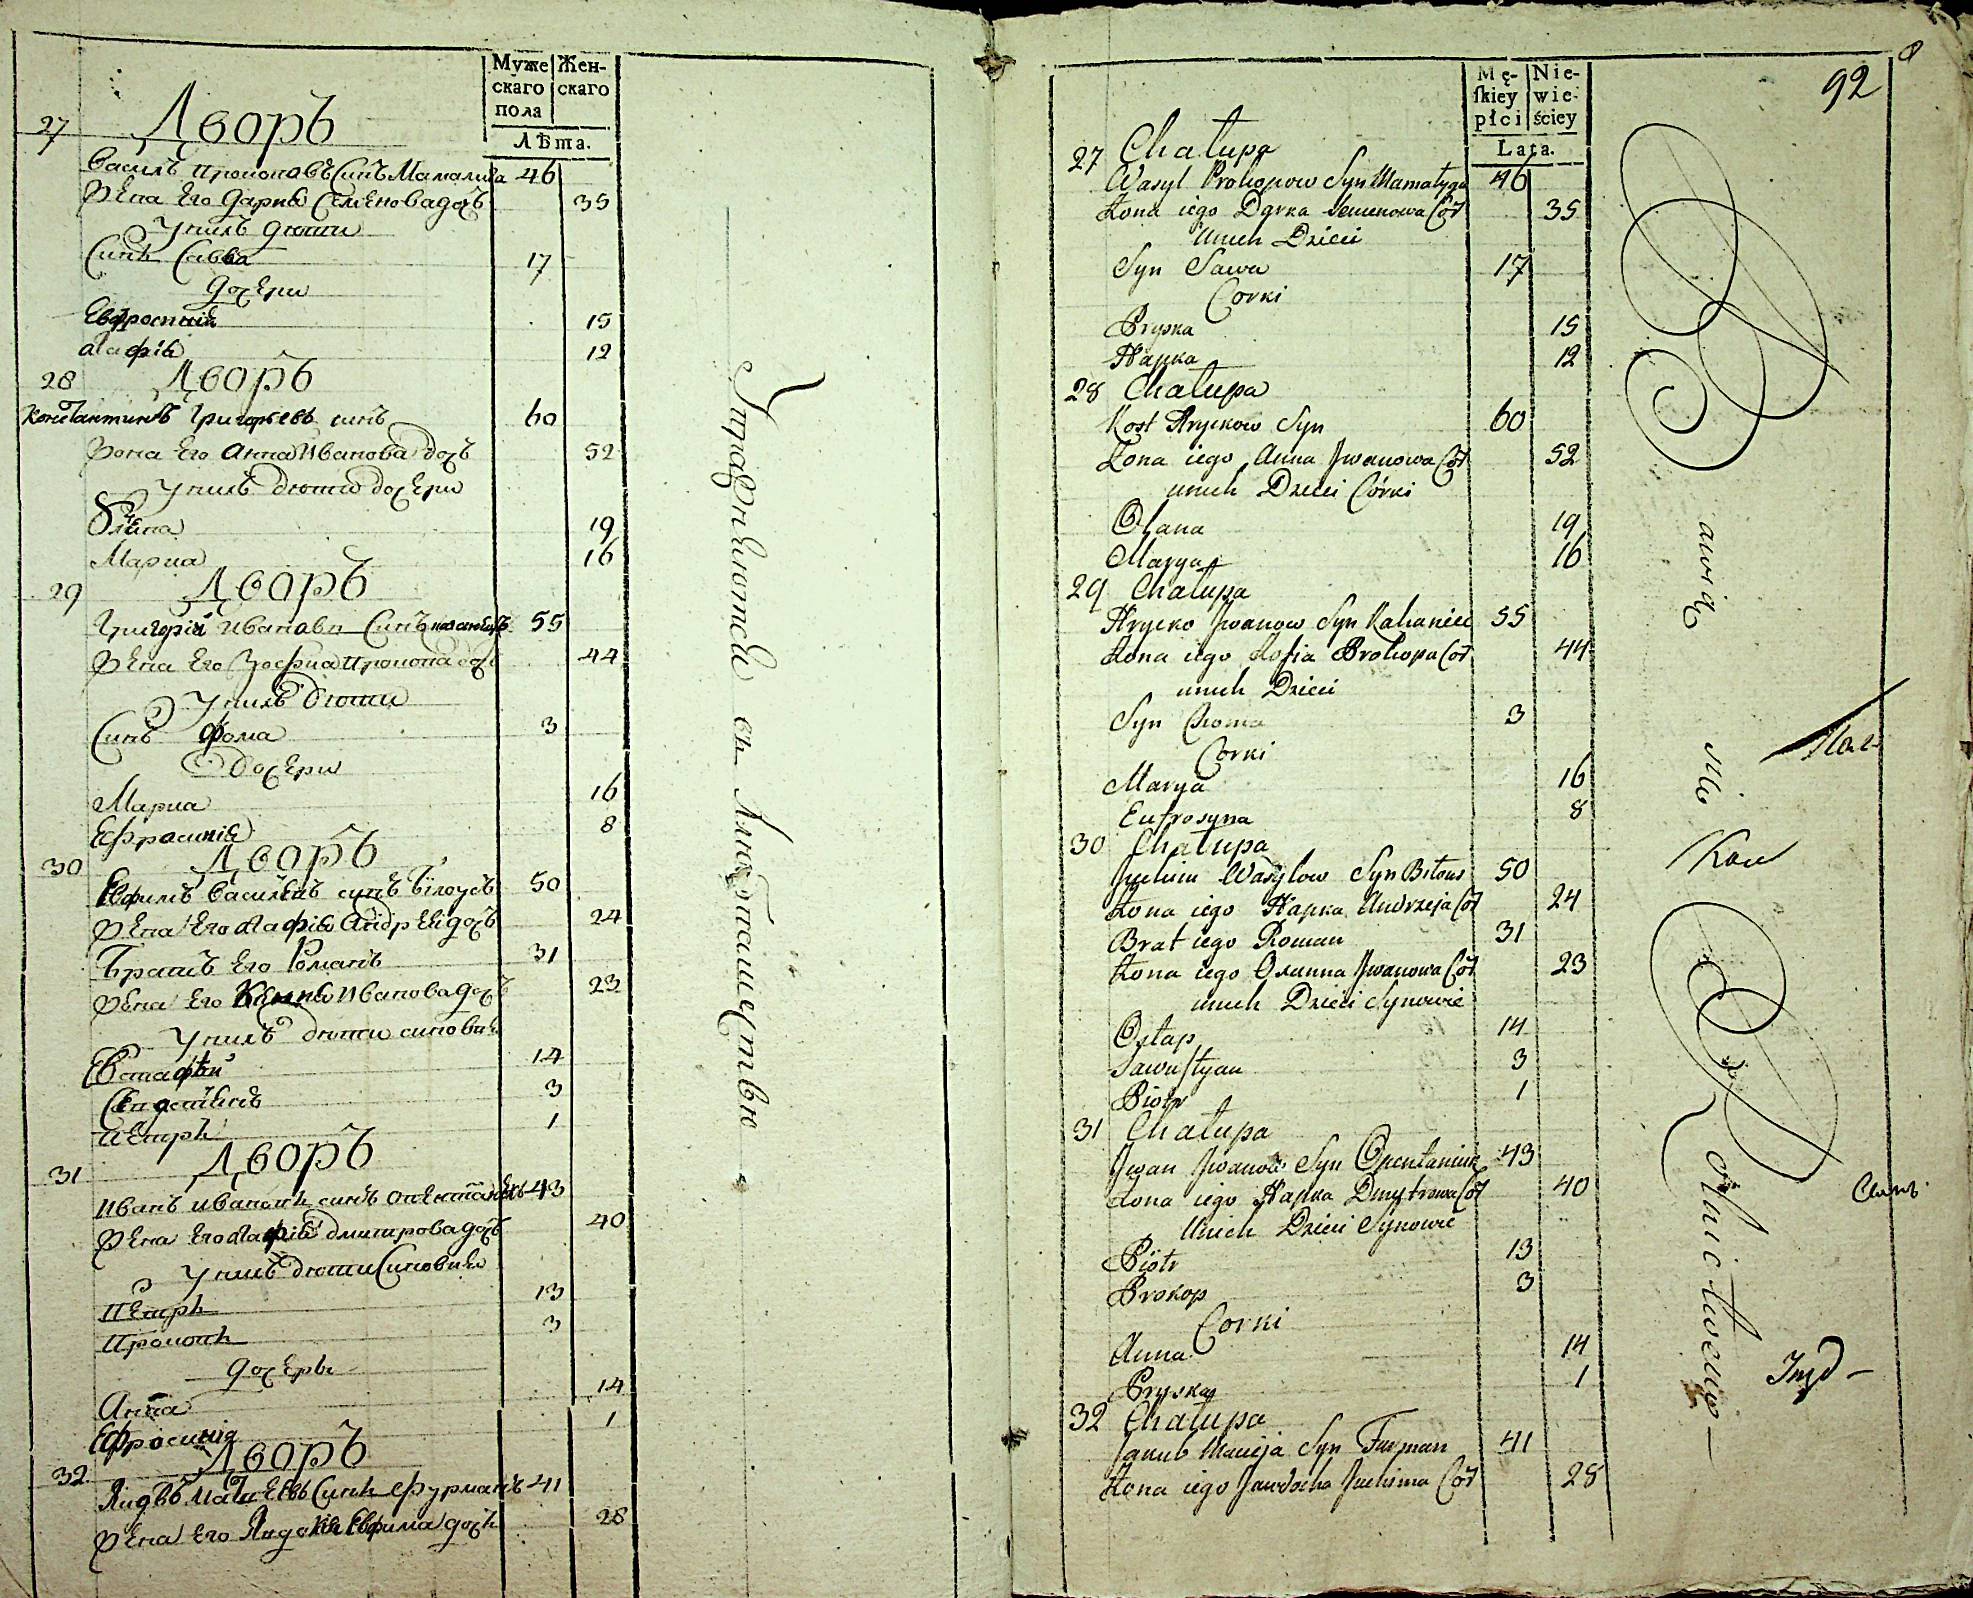 Муже Жен-
скаго скаго
пола
Лѣта.
27 Дворъ
Василъ Прокоповъ Синъ Мамалига 46
Жена Его Дария Семенова дочъ 35
У нихъ дѣти
Синъ Савва 17
дочери
Евфросиния 15
Агафія 12
28 Дворъ
Константинъ Григорьевъ синъ 60
Жена Его Анна Иванова дочъ 52
У нихъ дѣти дочери
19
Мариа 16
29 Дворъ
Григорій Ивановъ Синъ 55
Жена Его Зофиа Прокопа дочъ 44
У нихъ дѣти
Синъ Фома 3
дочери
Мариа 16
Ефросиния 8
30 Дворъ
Евфимъ Василевъ синъ Білоусъ 50
Жена Его Агафія Андрея дочъ 24
Братъ Его Романъ 31
Жена Его Иванова дочъ 23
У нихъ дѣти синовия
Евстафій 14
3
Петръ 1
31 Дворъ
Иванъ Ивановъ синъ 43
Жена Его Агафія Дмитрова дочъ 40
У нихъ дѣти Синовия
Петръ 13
Прокопъ 3
дочеры
Анна 14
Ефросинія 1
32 Дворъ
Яковъ Матвеевъ Синъ Фурманъ 41
Жена Его Евфима дочъ 28
92
Mę- Nie-
ſkiey wie-
płci ściey
Lata.
27 Chałupa
Wasyl Prokopow Syn Mamałyga 46
Żona iego Darka Semenowa Cor 35
U nich Dzieci
Syn Sawa 17
Corki
Pryska 15
Hapka 12
28 Chałupa
Kost Hryckow Syn 60
Żona iego Anna Jwanowa Cor 52
u nich Dzieci Córki
Ohana 19
Marya 16
29 Chałupa
Hrycko Jwanow Syn Kahaniec 55
Żona iego Zofia Prokopa Cor 44
u nich Dzieci
Syn Choma 3
Corki
Marya 16
Eufrosyna 8
30 Chałupa
Juchim Wasylow Syn Biłous 50
Żona iego Hapka Andrzeja Cor 24
Brat iego Roman 31
Żona iego Oxanna Jwanowa Cor 23
u nich Dzieci Synowie
Ostap 14
Sawastyan 3
Piotr 1
31 Chałupa
Jwan Jwanow Syn 43
Żona iego Hapka Dmytrowa Cor 40
U nich Dzieci Synowie
Piotr 13
Prokop 3
Corki
Anna 14
Pryska 1
32 Chałupa
Jakub Macieja Syn Furman 41
Żona iego Jawdocha Juchima Cor 28